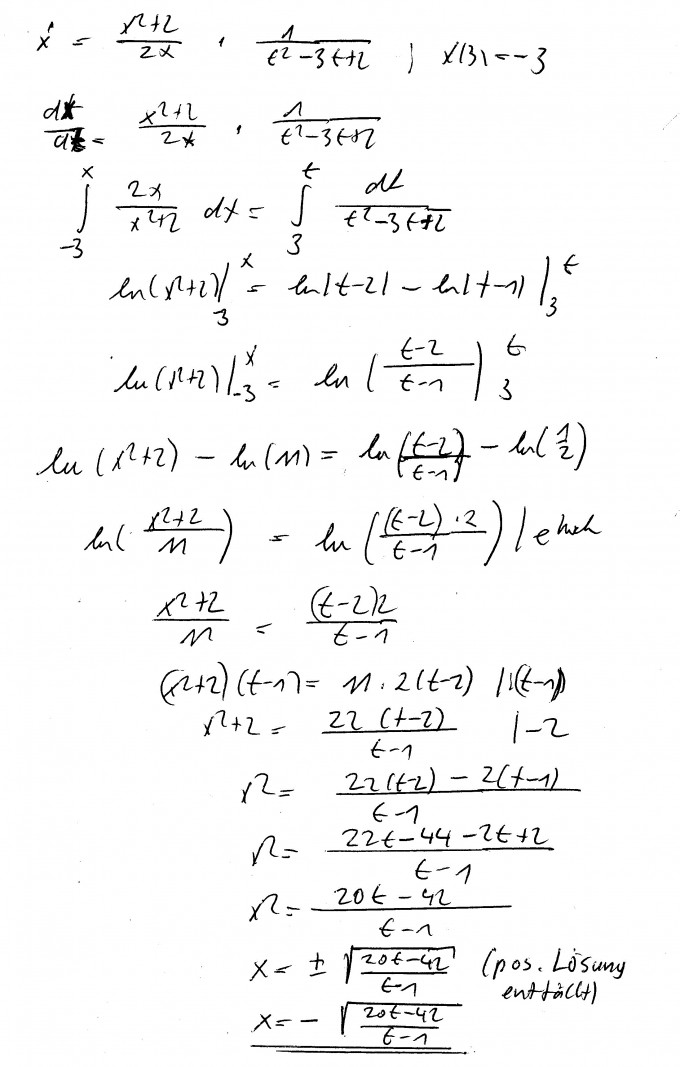 ẋ = (x²+2)/(2x) · 1/(t²-3t+2) ; x(3) = -3
dx/dt = (x²+2)/(2x) · 1/(t²-3t+2)
∫_{-3}^{x} 2x/(x²+2) dx = ∫_{3}^{t} dt/(t²-3t+2)
ln(x²+2)|_{3}^{x} = ln|t-2| - ln|t-1| |_{3}^{t}
ln(x²+2)|_{-3}^{x} = ln((t-2)/(t-1)) |_{3}^{t}
ln(x²+2) - ln(11) = ln((t-2)/(t-1)) - ln(1/2)
ln((x²+2)/11) = ln((t-2)·2/(t-1)) | e hoch
(x²+2)/11 = (t-2)2/(t-1)
(x²+2)(t-1) = 11·2(t-2) |:(t-1)
x²+2 = 22(t-2)/(t-1) |-2
x² = (22(t-2) - 2(t-1))/(t-1)
x² = (22t-44-2t+2)/(t-1)
x² = (20t-42)/(t-1)
x = ± √((20t-42)/(t-1)) (pos. Lösung
entfällt)
x = - √((20t-42)/(t-1))